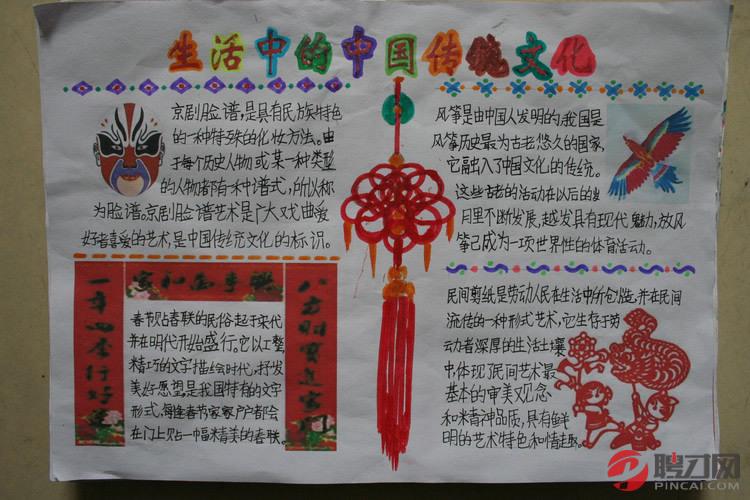 生活中的中国传统文化
京剧脸谱,是具有民族特色
的一种特殊的化妆方法。由
于每个历史人物或某一种类型
的人物都有一种谱式,所以称
为脸谱。京剧脸谱艺术是广大戏曲爱
好者喜爱的艺术,是中国传统文化的标识。
风筝是由中国人发明的,我国是
风筝历史最为古老悠久的国家,
它融入了中国文化的传统。
这些古老的活动在以后的岁
月里不断发展,越发具有现代魅力,放风
筝已成为一项世界性的体育活动。
一年四季行好运
家和万事兴
八方财宝进家门
春节贴春联的民俗起于宋代
并在明代开始盛行。它以工整,
精巧的文字描绘时代,抒发
美好愿望是我国特有的文字
形式,每逢春节家家户户都会
在门上贴一幅精美的春联。
民间剪纸是劳动人民在生活中所创造,并在民间
流传的一种形式艺术,它生存于劳
动者深厚的生活土壤
中体现了民间艺术最
基本的审美观念
和精神品质,具有鲜
明的艺术特色和情趣。
聘才网
PINCAI.COM